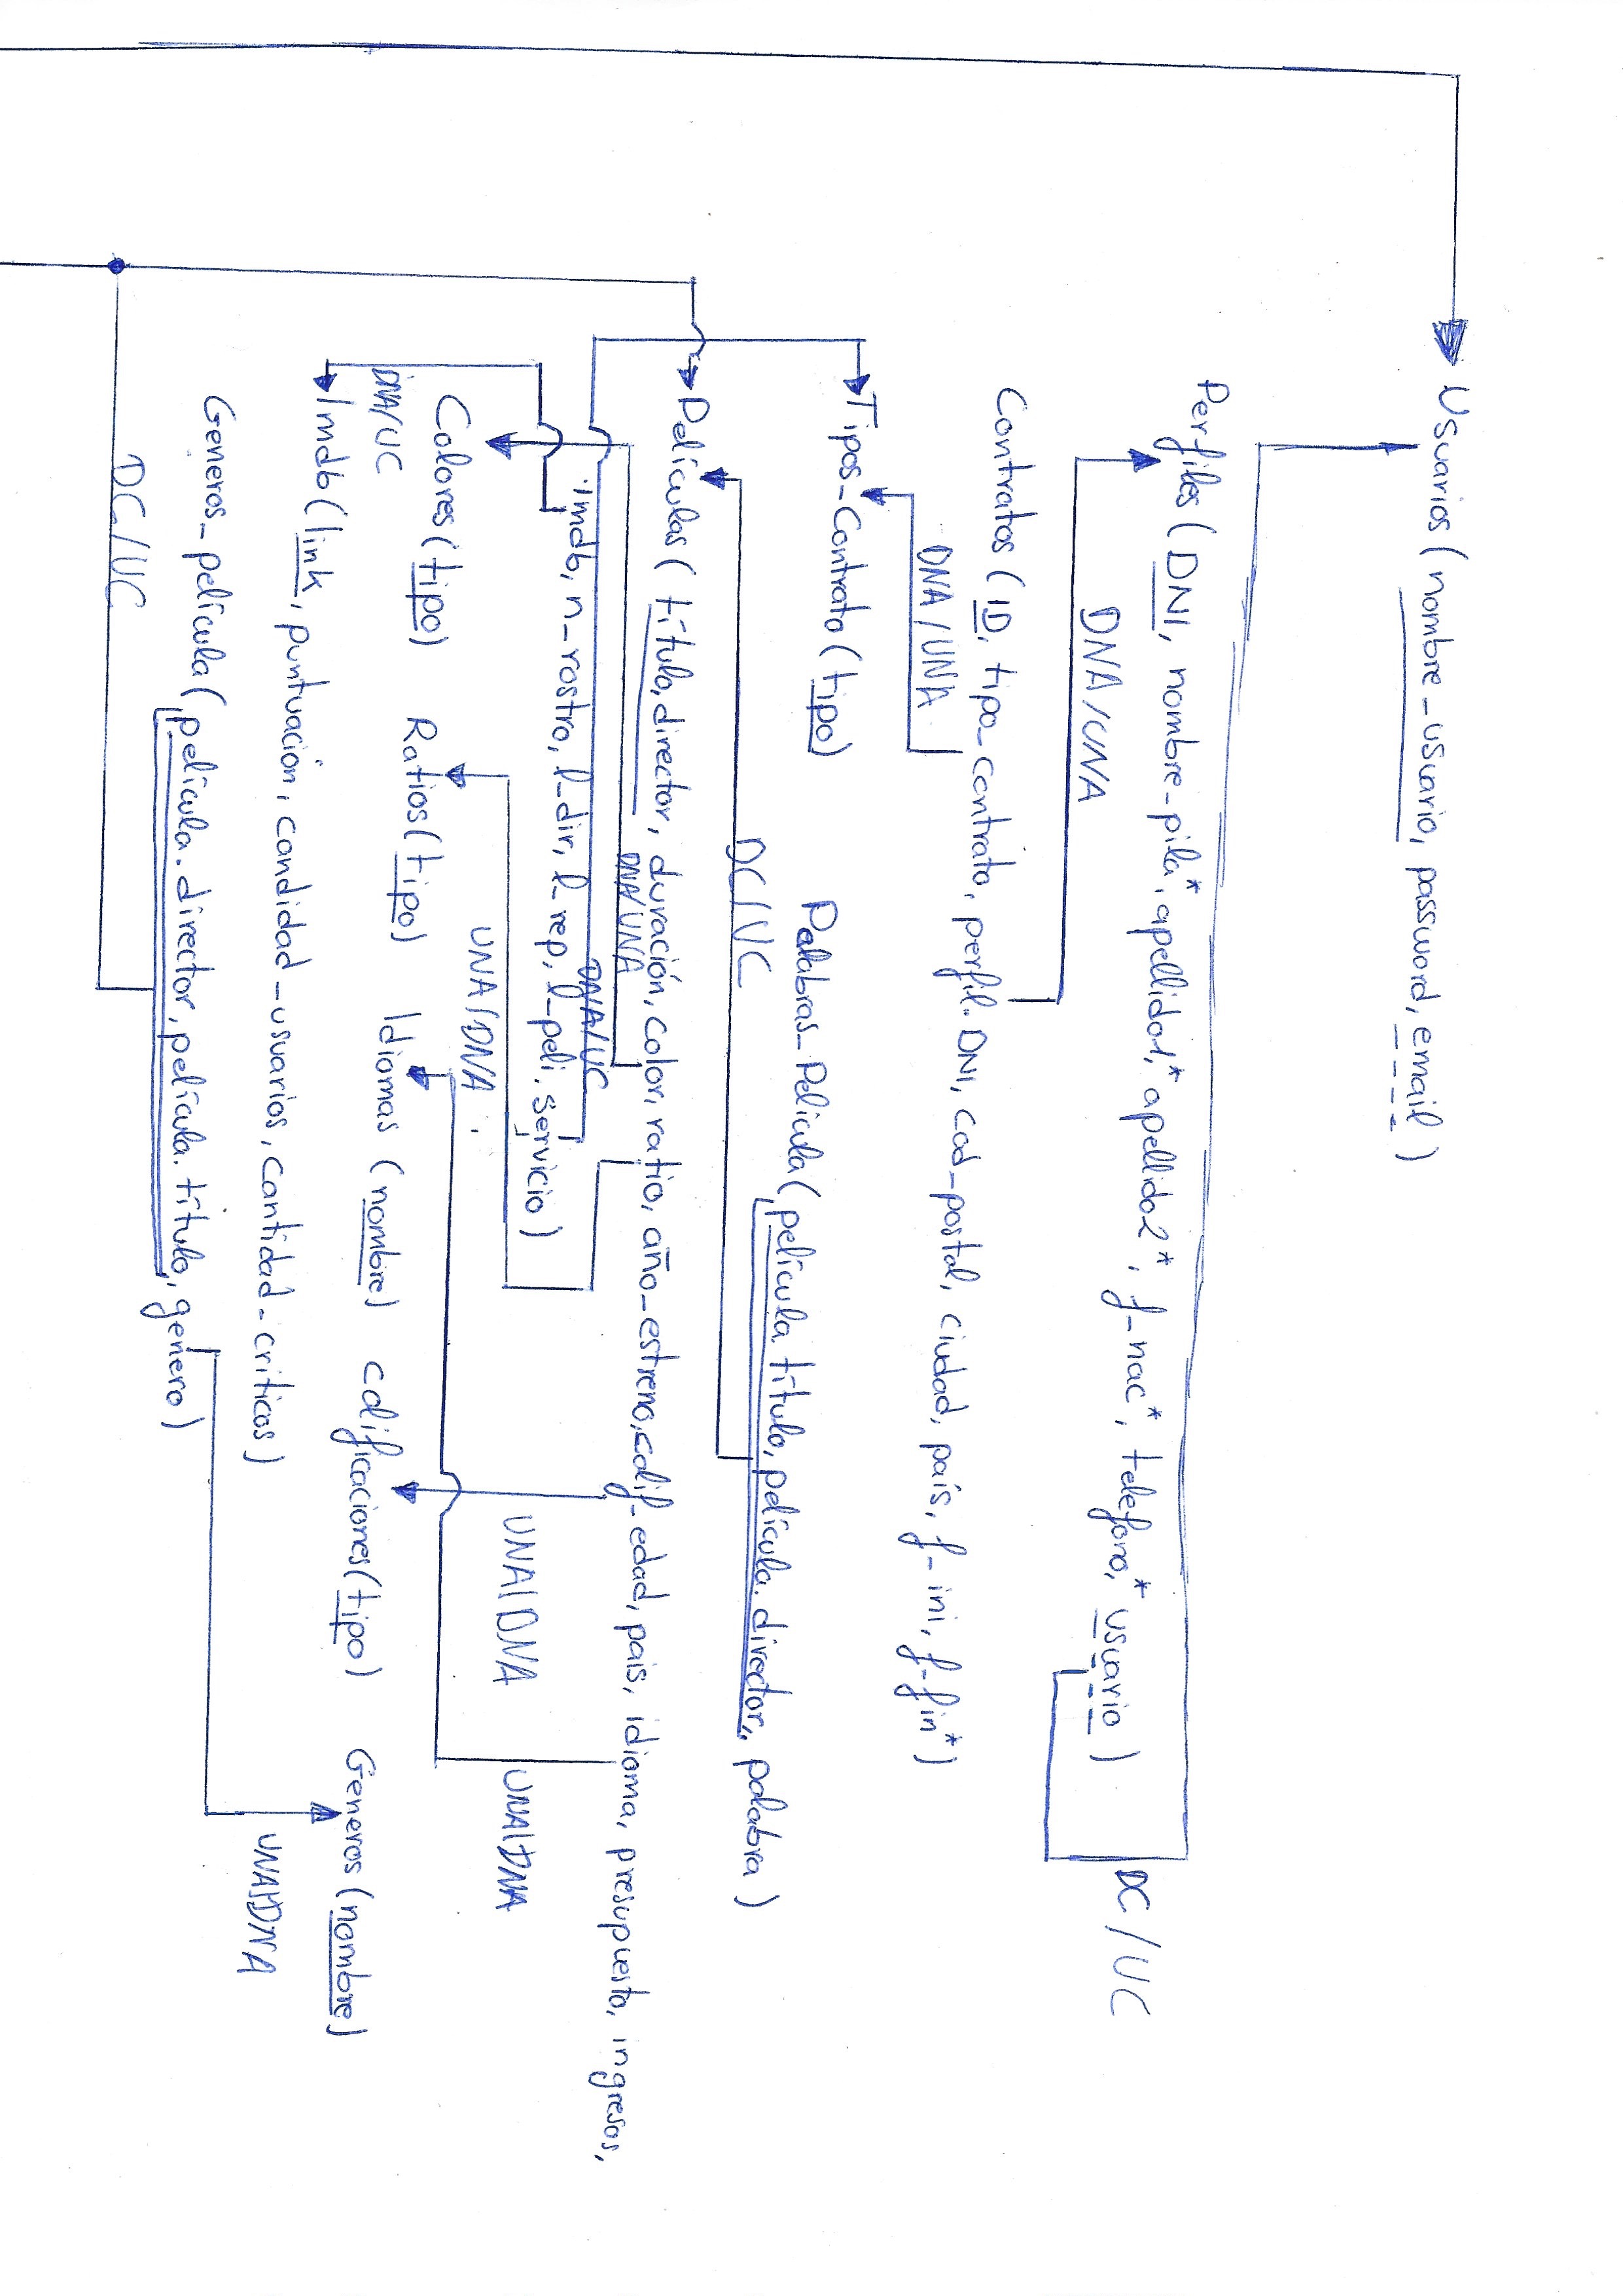 Usuarios (nombre_usuario, password, email)
Perfiles (DNI, nombre_pila*, apellido1,* apellido2*, f_nac*, telefono,* usuario)
DC/UC
DNA/UNA
Contratos (ID, tipo_contrato, perfil.DNI, cod_postal, ciudad, país, f_ini, f_fin*)
DNA/UNA
Tipos_Contrato (tipo)
Palabras_Pelicula (película.título, película.director, palabra)
DC/UC
Películas (título, director, duración, color, ratio, año_estreno, calif_edad, pais, idioma, presupuesto, ingresos,
DNA/UNA
DNA/UC
Imdb, n_rostro, l_dir, l_rep, l_peli, servicio)
UNA/DNA
UNA/DNA
UNA/DNA
Colores (tipo)
Ratios (tipo)
Idiomas (nombre)
calificaciones (tipo)
Generos (nombre)
DNA/UC
Imdb (link, puntuación, candidad_usuarios, cantidad_criticos)
UNA/DNA
Generos_película (película.director, película.título, genero)
DC/UC